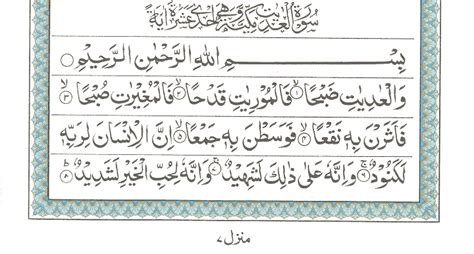 سُوْرَةُ الْعٰدِيٰتِ مَكِّيَّةٌ وَّهِيَ اِحْدٰى عَشْرَةَ اٰيَةً
بِسْمِ اللّٰهِ الرَّحْمٰنِ الرَّحِيْمِ ○
وَالْعٰدِيٰتِ ضَبْحًا ۙ۱ فَالْمُوْرِيٰتِ قَدْحًا ۙ۲ فَالْمُغِيْرٰتِ صُبْحًا ۙ۳
فَاَثَرْنَ بِهٖ نَقْعًا ۙ۴ فَوَسَطْنَ بِهٖ جَمْعًا ۙ۵ اِنَّ الْاِنْسَانَ لِرَبِّهٖ
لَكَنُوْدٌ ۚ۶ وَاِنَّهٗ عَلٰى ذٰلِكَ لَشَهِيْدٌ ۚ۷ وَاِنَّهٗ لِحُبِّ الْخَيْرِ لَشَدِيْدٌ ؕ۸
منزل ۷